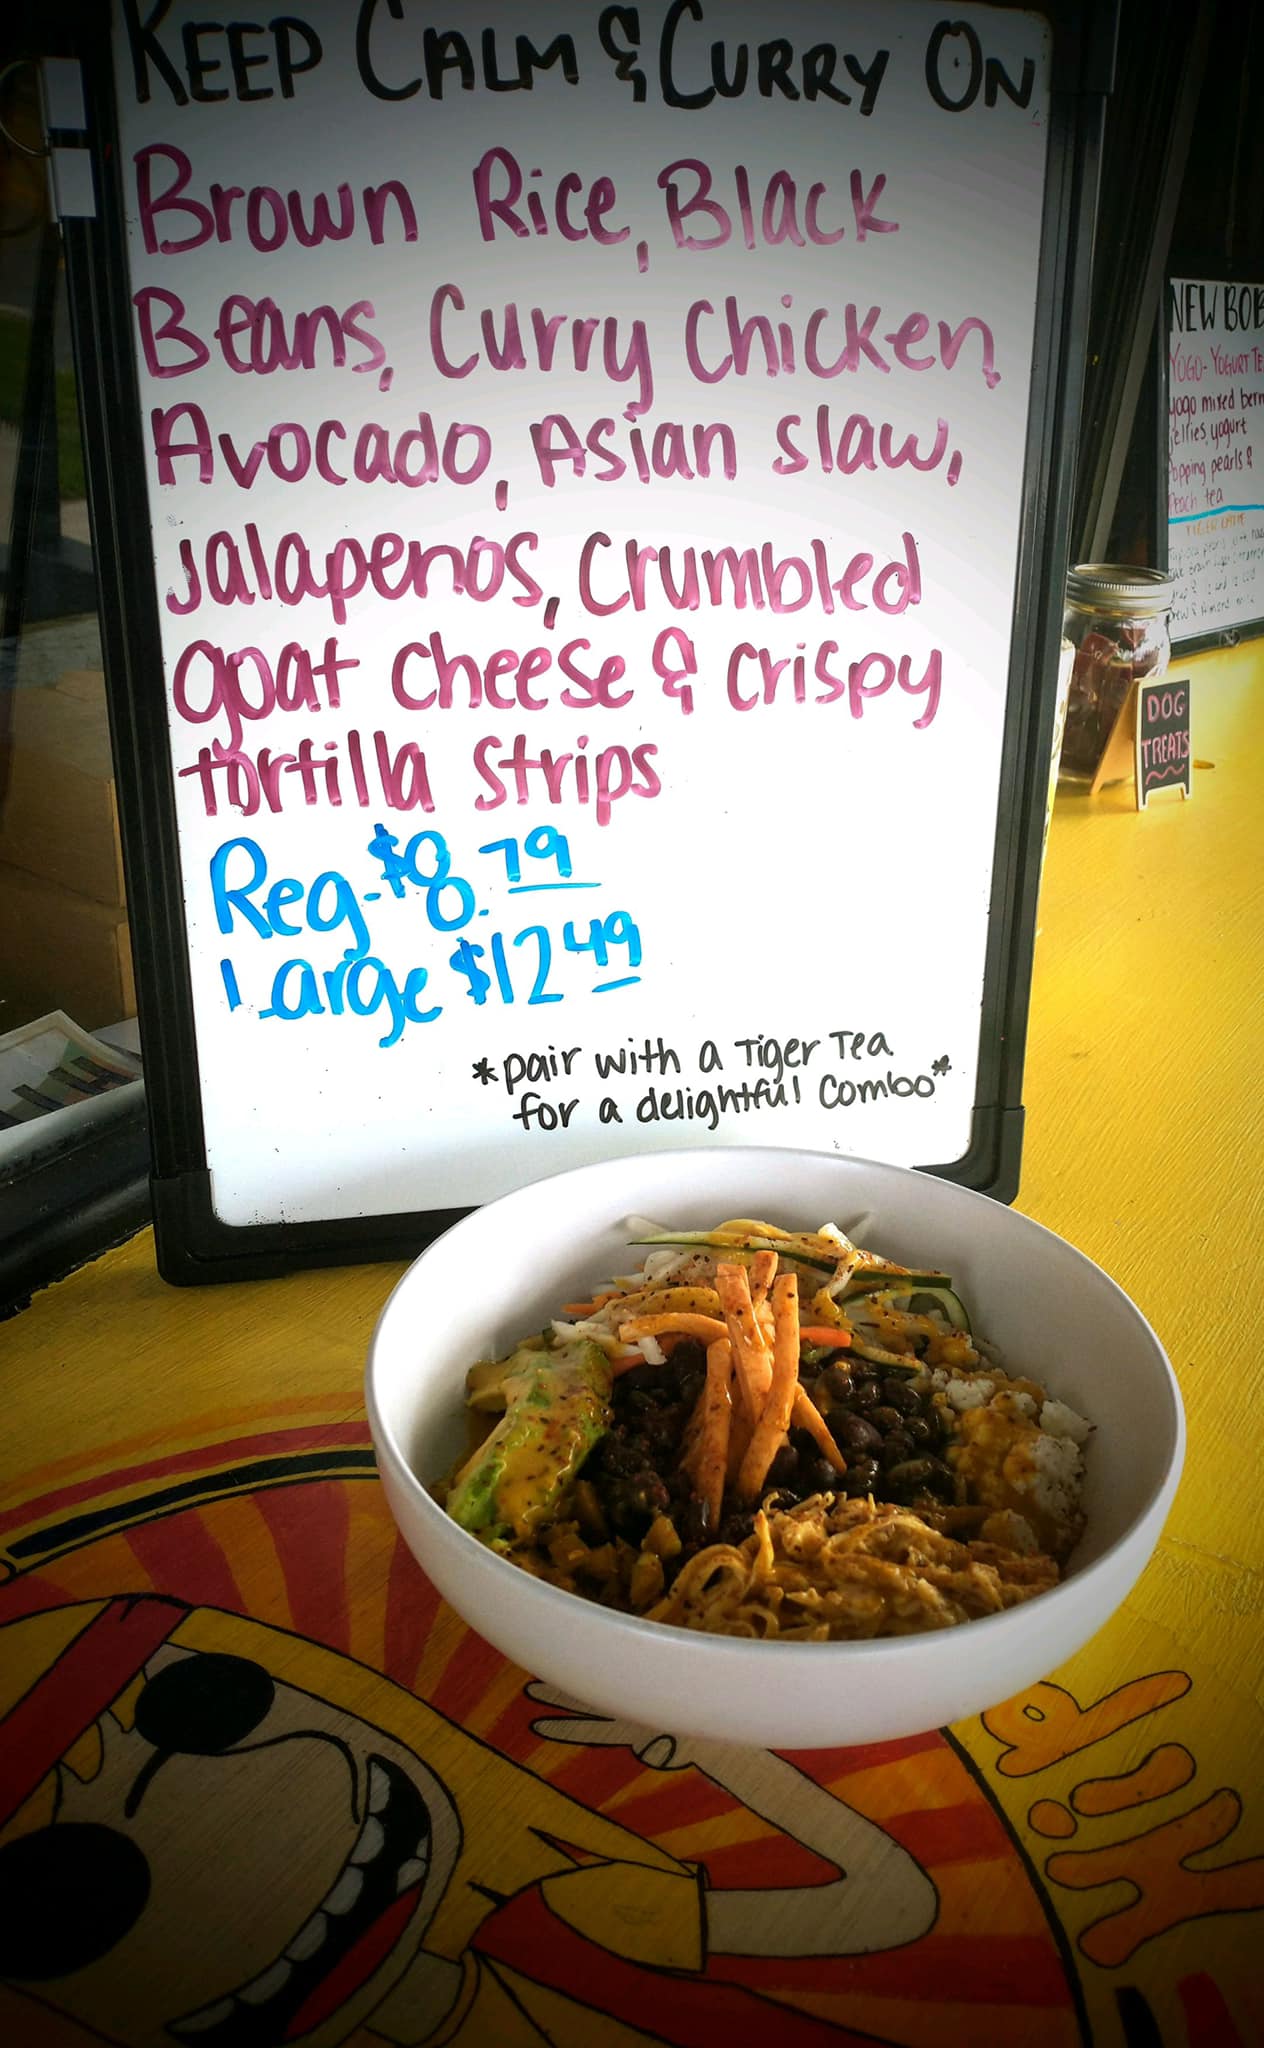 KEEP CALM & CURRY ON
Brown Rice, Black
Beans, Curry Chicken,
Avocado, Asian slaw,
Jalapenos, Crumbled
goat cheese & crispy
tortilla strips
Reg-$8.79
Large $12 49
*pair with a Tiger Tea
for a delightful combo*
NEW BOB
YOGO-YOGURT TE
yogo mixed berr
jellies, yogurt
popping pearls &
Peach tea
DOG
TREATS